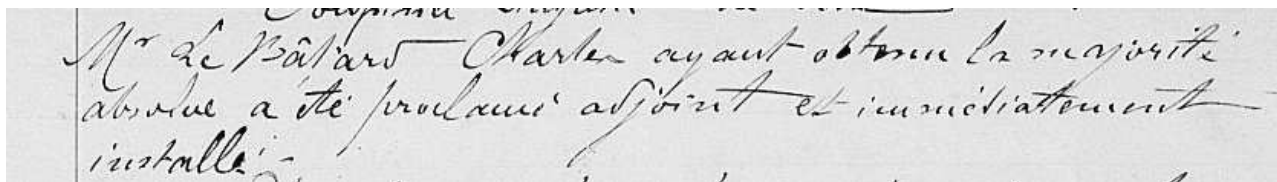 Mr Le Bâtard Charles ayant obtenu la majorité
absolue a été proclamé adjoint et immédiattement
installé.